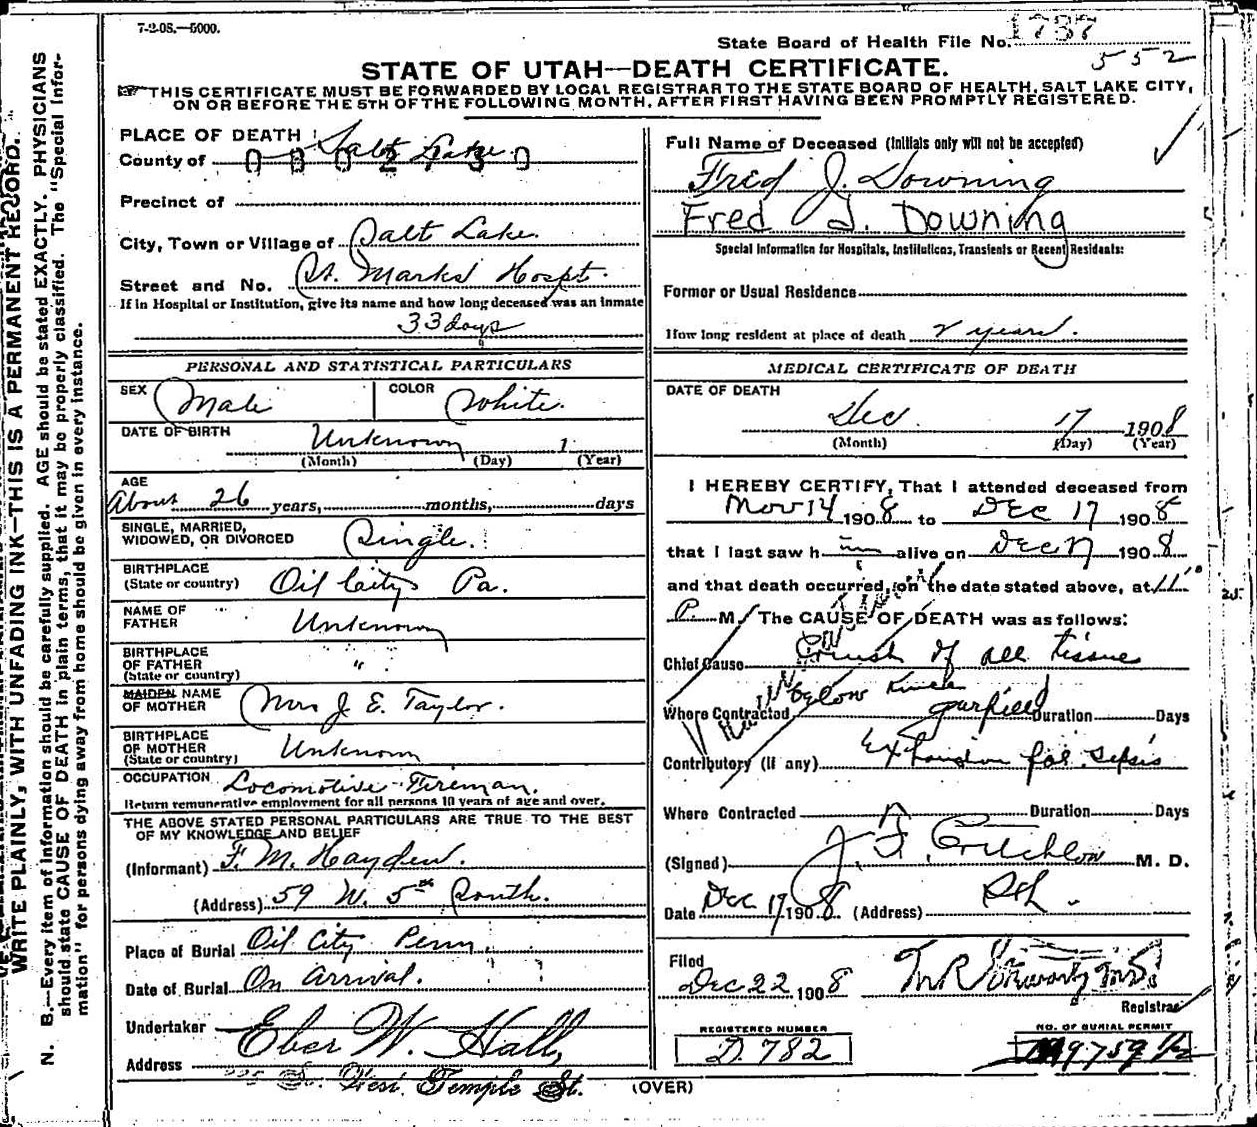 7-2-08.—5000.
State Board of Health File No. 1737
552
STATE OF UTAH—DEATH CERTIFICATE.
THIS CERTIFICATE MUST BE FORWARDED BY LOCAL REGISTRAR TO THE STATE BOARD OF HEALTH, SALT LAKE CITY,
ON OR BEFORE THE 5TH OF THE FOLLOWING MONTH, AFTER FIRST HAVING BEEN PROMPTLY REGISTERED.
WRITE PLAINLY, WITH UNFADING INK—THIS IS A PERMANENT RECORD.
N. B.—Every item of information should be carefully supplied. AGE should be stated EXACTLY. PHYSICIANS
should state CAUSE OF DEATH in plain terms, that it may be properly classified. The "Special Infor-
mation" for persons dying away from home should be given in every instance.
PLACE OF DEATH
County of Salt Lake
Precinct of
City, Town or Village of Salt Lake
Street and No. St. Marks Hospt.
If in Hospital or Institution, give its name and how long deceased was an inmate
33 days
PERSONAL AND STATISTICAL PARTICULARS
SEX Male COLOR White.
DATE OF BIRTH Unknown 1
(Month) (Day) (Year)
AGE
About 26 years, months, days
SINGLE, MARRIED,
WIDOWED, OR DIVORCED Single.
BIRTHPLACE
(State or country) Oil City Pa.
NAME OF
FATHER Unknown
BIRTHPLACE
OF FATHER "
(State or country)
MAIDEN NAME
OF MOTHER Mrs J. E. Taylor.
BIRTHPLACE
OF MOTHER Unknown
(State or country)
OCCUPATION Locomotive Fireman.
Return remunerative employment for all persons 10 years of age and over.
THE ABOVE STATED PERSONAL PARTICULARS ARE TRUE TO THE BEST
OF MY KNOWLEDGE AND BELIEF
(Informant) F. M. Hayden.
(Address) 59 W. 5th South.
Place of Burial Oil City Penn.
Date of Burial On arrival.
Undertaker Eber W. Hall,
Address So. West Temple St.
Full Name of Deceased (Initials only will not be accepted)
Fred J. Downing
Fred J. Downing
Special Information for Hospitals, Institutions, Transients or Recent Residents:
Former or Usual Residence
How long resident at place of death 2 years.
MEDICAL CERTIFICATE OF DEATH
DATE OF DEATH
Dec 17 1908
(Month) (Day) (Year)
I HEREBY CERTIFY, That I attended deceased from
Nov 14 1908 to Dec 17 1908
that I last saw him alive on Dec 17 1908
and that death occurred, on the date stated above, at 11
P. M. The CAUSE OF DEATH was as follows:
Chief Cause Crush of all tissue
below knee
Where Contracted Garfield Duration Days
Contributory (if any) Exhaustion for Sepsis
Where Contracted Duration Days
(Signed) J. F. Critchlow M. D.
Date Dec 17 1908 (Address)
Filed
Dec 22 1908
Registrar
REGISTERED NUMBER
D. 782
NO. OF BURIAL PERMIT
(OVER)